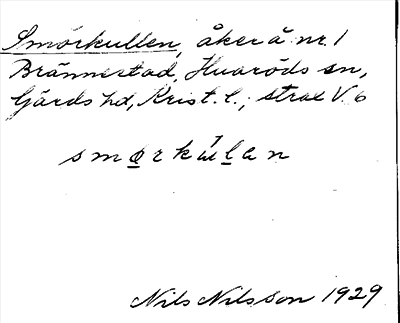 Smörkullen, åker å nr 1
Brännestad, Huaröds sn,
Gärds hd, Krist. l.; strax V. 6
smørkulan
Nils Nilsson 1929